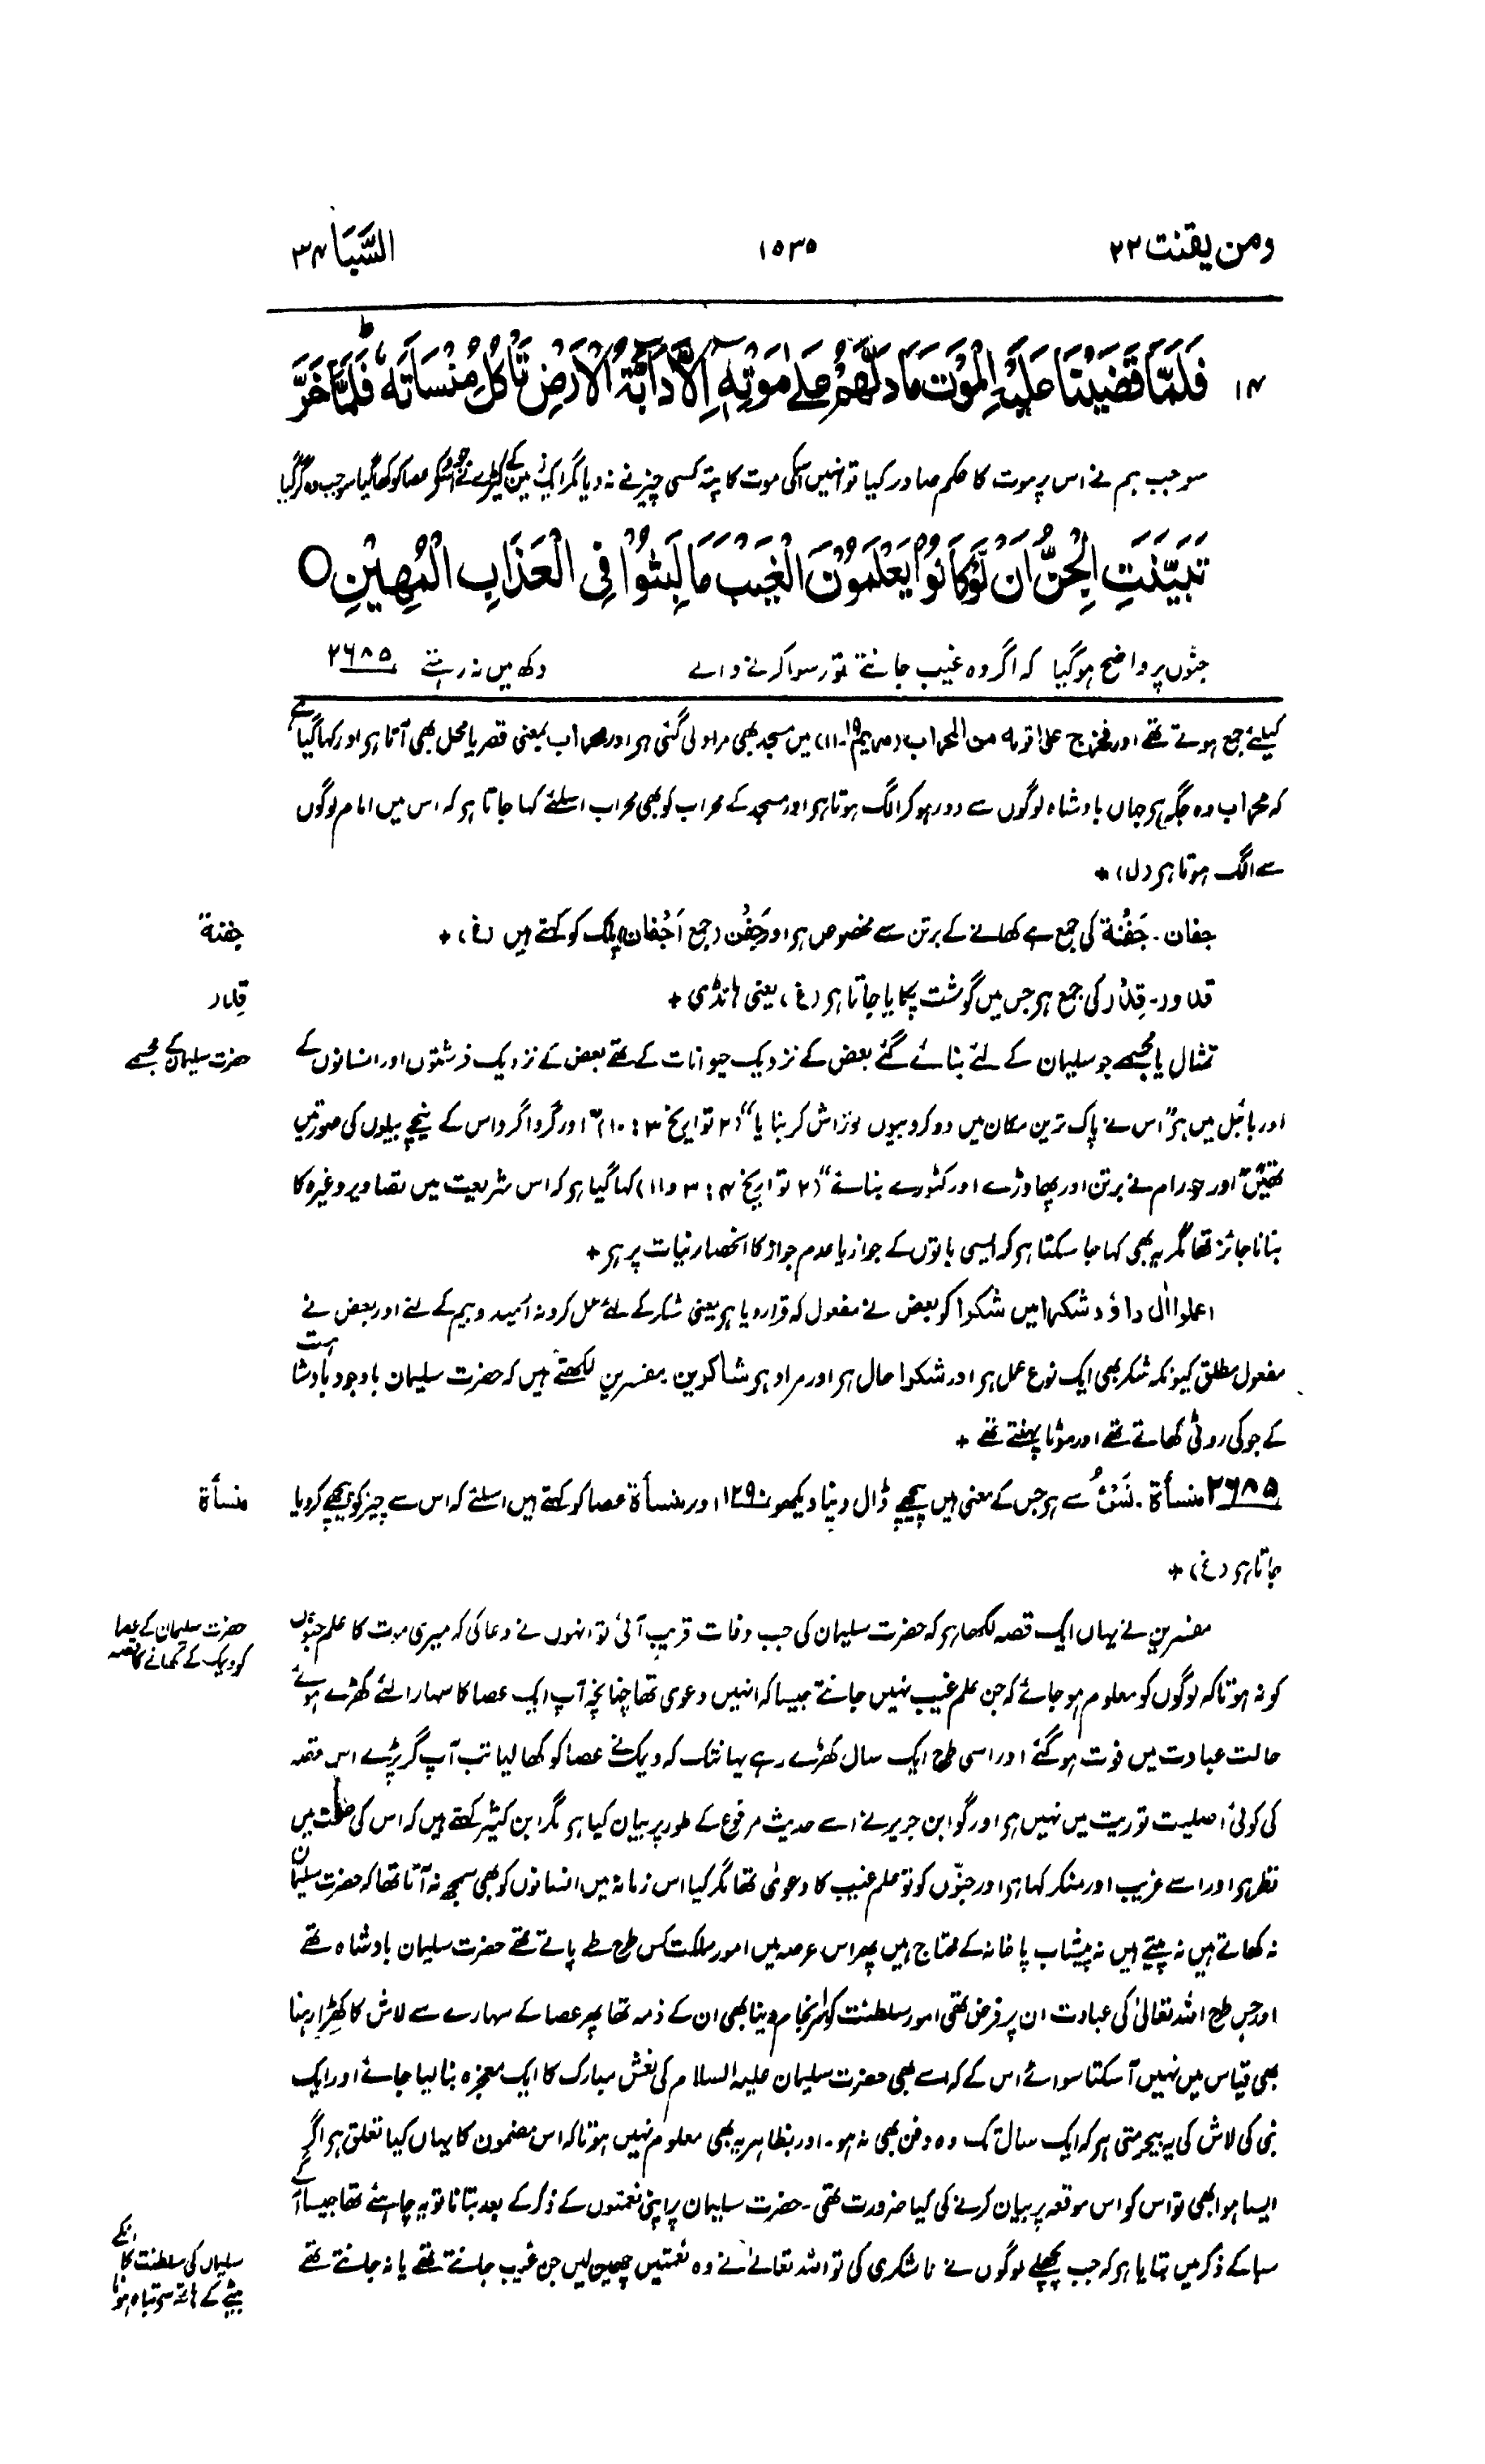 ومن یقنت ۲۲
۱۵۳۵
السَّبَا ۳۴
۱۴ فَلَمَّا قَضَيْنَا عَلَيْهِ الْمَوْتَ مَا دَلَّهُمْ عَلٰى مَوْتِهٖٓ اِلَّا دَآبَّةُ الْاَرْضِ تَاْكُلُ مِنْسَاَتَهٗ ۚ فَلَمَّا خَرَّ
سو جب ہم نے اس پر موت کا حکم صادر کیا تو انہیں اسکی موت کا پتہ کسی چیز نے نہ دیا مگر ایک زمین کے کیڑے نے جو اسکے عصا کو کھا گیا سو جب وہ گر گیا
تَبَيَّنَتِ الْجِنُّ اَنْ لَّوْ كَانُوْا يَعْلَمُوْنَ الْغَيْبَ مَا لَبِثُوْا فِى الْعَذَابِ الْمُهِيْنِ ○
جنوں پر واضح ہو گیا کہ اگر وہ غیب جانتے تو رسوا کرنے والے دکھ میں نہ رہتے ۲۶۸۵
کیلئے جمع ہوتے تھے اور فخرج علیٰ قومہ من المحراب (مریم ۱۹-۱۱) میں مسجد بھی مراد لی گئی ہو اور محراب بمعنی قصر یا محل بھی آتا ہو اور کہا گیا ہے
کہ محراب وہ جگہ ہو جہاں بادشاہ لوگوں سے دور ہو کر الگ ہوتا ہو اور مسجد کے محراب کو بھی محراب اسلئے کہا جاتا ہو کہ اس میں امام لوگوں
سے الگ ہوتا ہو (ل) +
جفان۔ جَفْنَة کی جمع ہے کھانے کے برتن سے مخصوص ہو اور جَفْن (جمع اَجْفان) پلک کو کہتے ہیں (غ) +
جفنة
قدور۔ قِدْر کی جمع ہو جس میں گوشت پکایا جاتا ہو (غ) یعنی ہانڈی +
قدر
تمثال یا مجسمے جو سلیمان کے لئے بنائے گئے بعض کے نزدیک حیوانات کے تھے بعض کے نزدیک فرشتوں اور انسانوں کے
حضرت سلیمان کے مجسمے
اور بائبل میں ہو "اس نے پاک ترین مکان میں دو کروبیوں کو تراش کر بنایا" (۲ تواریخ ۳ : ۱۰) "اور گردا گرد اس کے نیچے بیلوں کی صورتیں
تھیں" اور حورام نے برتن اور پھاوڑے اور کٹورے بنائے" (۲ تواریخ ۴ : ۳ و ۱۱) کہا گیا ہو کہ اس شریعت میں تصاویر وغیرہ کا
بنانا جائز تھا مگر یہ بھی کہا جا سکتا ہو کہ ایسی باتوں کے جواز یا عدم جواز کا انحصار نیات پر ہو +
اعملوا اٰل داؤد شکرا میں شکرا کو بعض نے مفعول لہ قرار دیا ہو یعنی شکر کے لئے عمل کرو نہ اُمید و بیم کے لئے اور بعض نے
مفعول مطلق کیونکہ شکر بھی ایک نوع عمل ہو اور شکرا حال ہو اور مراد ہو شاکرین۔ مفسرین لکھتے ہیں کہ حضرت سلیمان باوجود بادشاہت
کے جو کی روٹی کھاتے تھے اور موٹا پہنتے تھے +
۲۶۸۵ منسأة۔ نَسْءٌ سے ہو جس کے معنی ہیں پیچھے ڈال دینا دیکھو ۱۲۹۰ اور منسأة عصا کو کہتے ہیں اسلئے کہ اس سے چیز کو پیچھے کر دیا
منسأة
جاتا ہو (غ) +
مفسرین نے یہاں ایک قصہ لکھا ہو کہ حضرت سلیمان کی جب وفات قریب آئی تو انہوں نے دعا کی کہ میری موت کا علم جنوں
حضرت سلیمان کے عصا کو دیمک کے کھانے کا قصہ
کو نہ ہو تاکہ لوگوں کو معلوم ہو جائے کہ جن علم غیب نہیں جانتے جیسا کہ انہیں دعوی تھا چنانچہ آپ ایک عصا کا سہارا لئے کھڑے ہوئے
حالت عبادت میں فوت ہو گئے اور اسی طرح ایک سال کھڑے رہے یہانتک کہ دیمک نے عصا کو کھا لیا تب آپ گر پڑے اس قصہ
کی کوئی اصلیت توریت میں نہیں ہو اور گو ابن جریر نے اسے حدیث مرفوع کے طور پر بیان کیا ہو مگر ابن کثیر کہتے ہیں کہ اس کی صحت میں
نظر ہو اور اسے غریب اور منکر کہا ہو اور جنّوں کو تو علم غیب کا دعویٰ تھا مگر کیا اس زمانہ میں انسانوں کو بھی سمجھ نہ آتا تھا کہ حضرت سلیمان
نہ کھاتے ہیں نہ پیتے ہیں نہ پیشاب پاخانہ کے محتاج ہیں پھر اس عرصہ میں امور مملکت کس طرح طے پاتے تھے حضرت سلیمان بادشاہ تھے
اور جس طرح اللہ تعالیٰ کی عبادت ان پر فرض تھی امور سلطنت کو سرانجام دینا بھی ان کے ذمہ تھا پھر عصا کے سہارے سے لاش کا کھڑا رہنا
بھی قیاس میں نہیں آ سکتا سوائے اس کے کہ اسے بھی حضرت سلیمان علیہ السلام کی نعش مبارک کا ایک معجزہ بنا لیا جائے اور ایک
نبی کی لاش کی یہ بیحرمتی ہو کہ ایک سال تک وہ دفن بھی نہ ہو۔ اور بظاہر یہ بھی معلوم نہیں ہوتا کہ اس مضمون کا یہاں کیا تعلق ہو اگر
ایسا ہوا بھی تو اس کو اس موقعہ پر بیان کرنے کی کیا ضرورت تھی۔ حضرت سلیمان پر اپنی نعمتوں کے ذکر کے بعد بتانا تو یہ چاہئے تھا جیسا آگے
سبا کے ذکر میں بتایا ہو کہ جب پچھلے لوگوں نے ناشکری کی تو اللہ تعالےٰ نے وہ نعمتیں چھین لیں جن غیب جانتے تھے یا نہ جانتے تھے
سلیمان کی سلطنت کا انکے
بیٹے کے ہاتھ سے تباہ ہونا